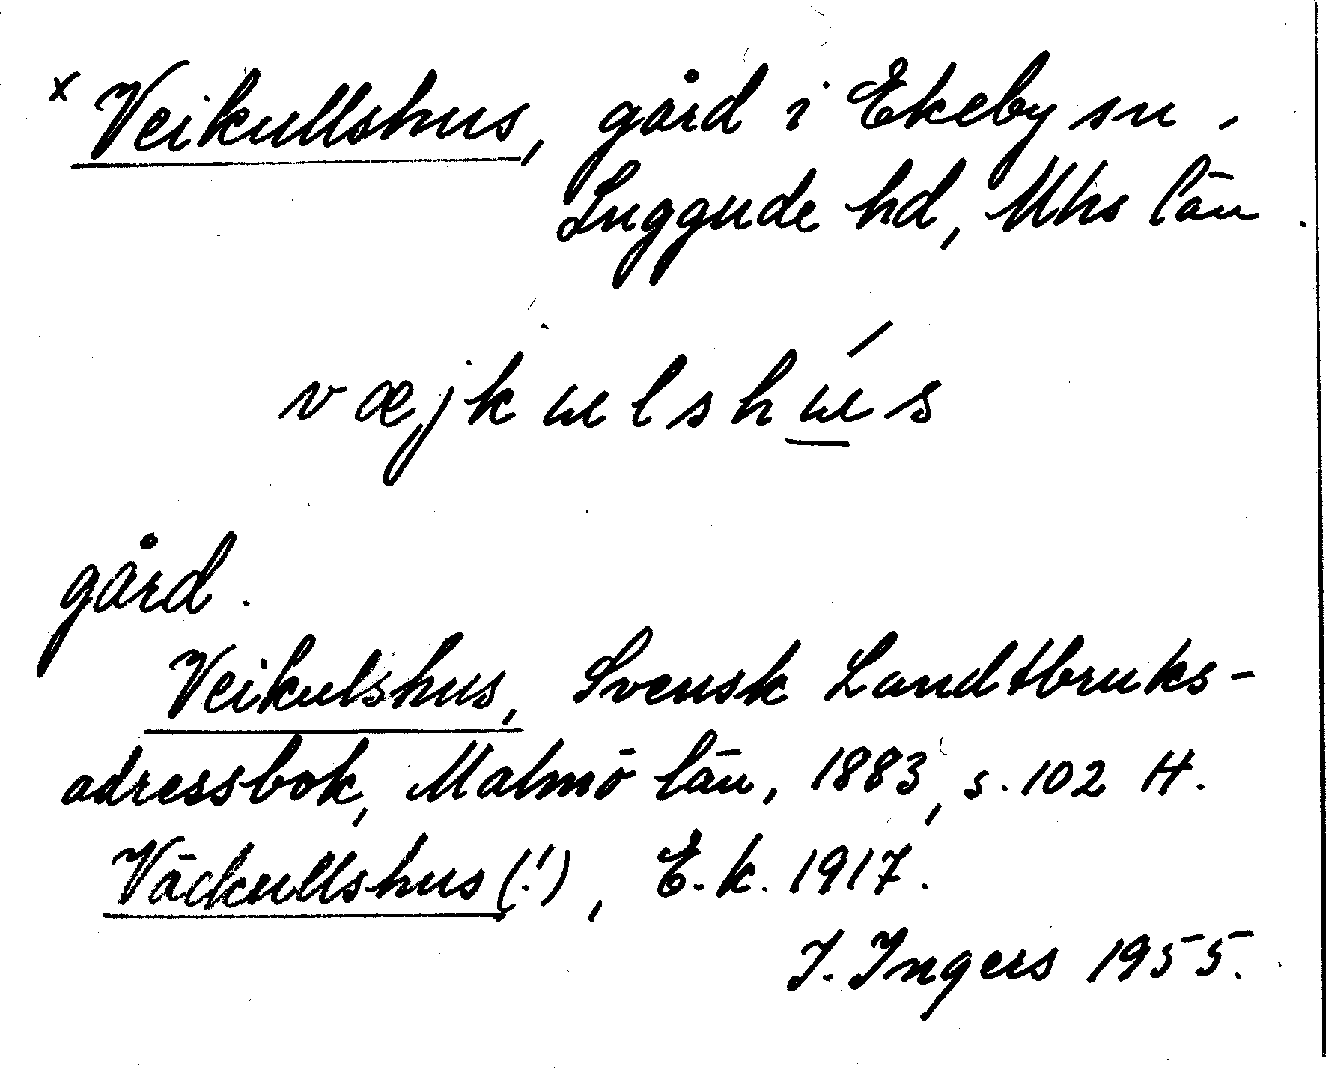 x Veikullshus, gård i Ekeby sn,
Luggude hd, Mhs län.
væjkulshú̲s
gård.
Veikulshus, Svensk Landtbruks-
adressbok, Malmö län, 1883, s. 102 H.
Väckullshus (!), E.k. 1917.
I. Ingers 1955.